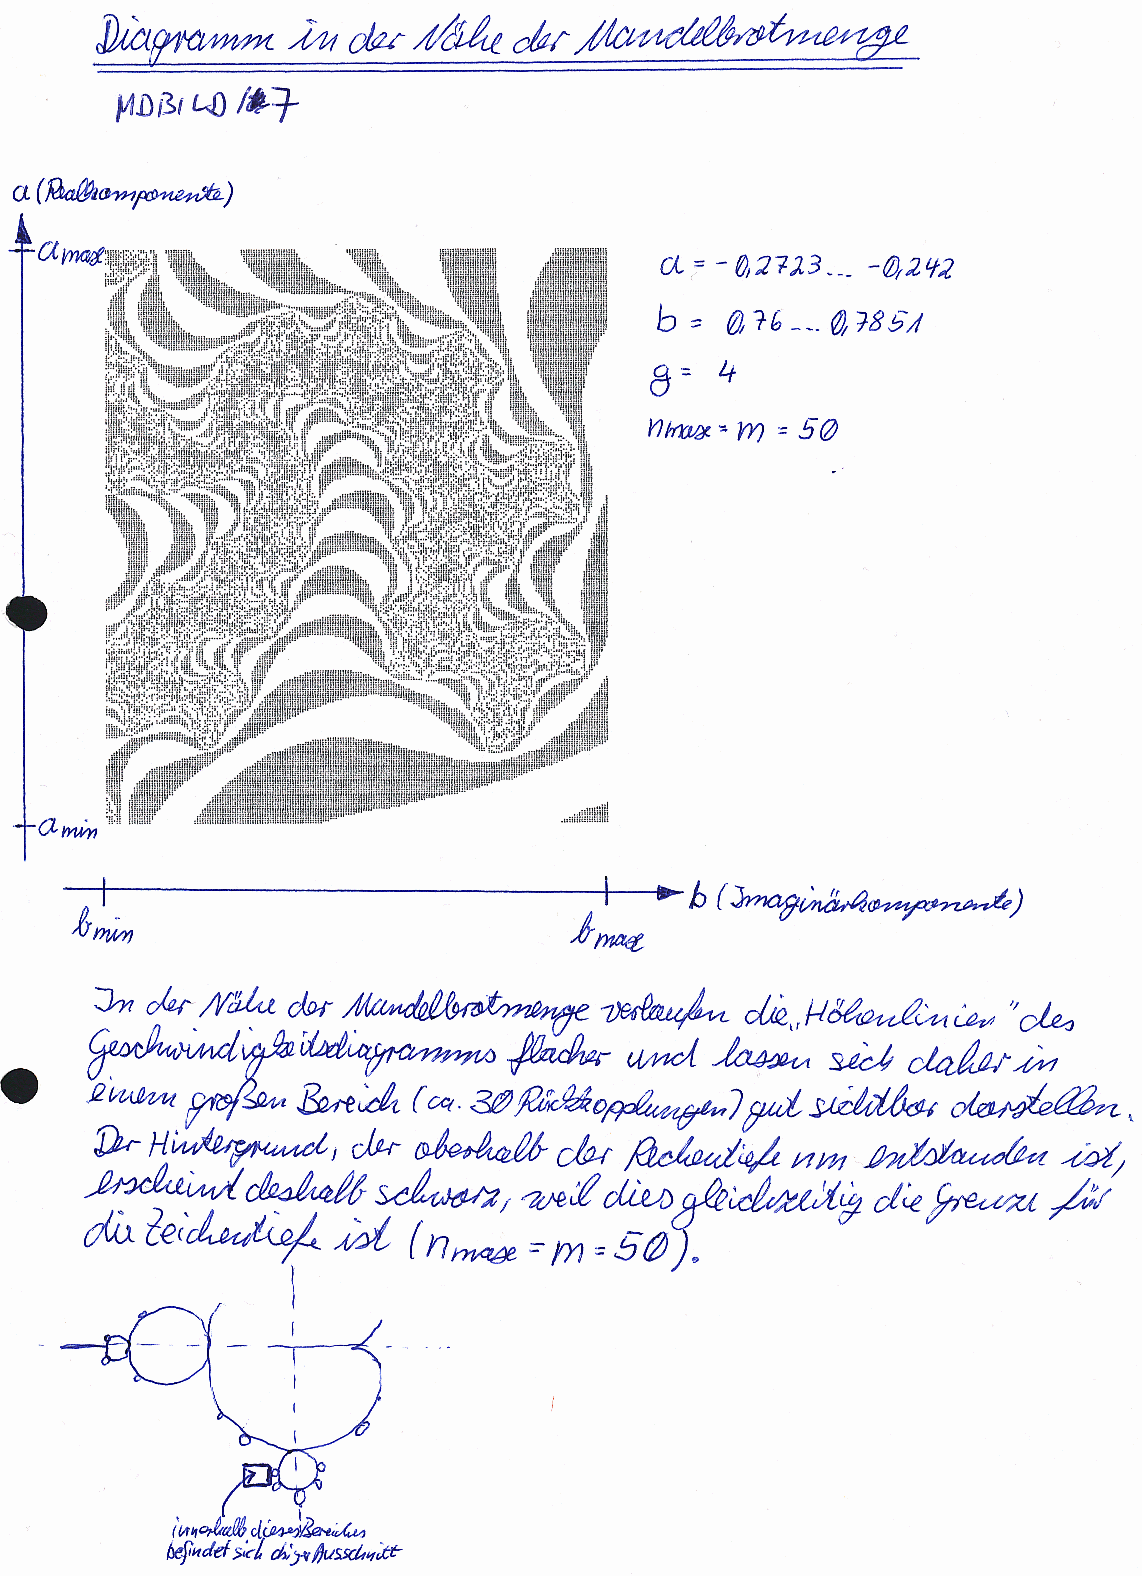 Diagramm in der Nähe der Mandelbrotmenge
MDBILD 7
a (Realkomponente)
a max
a = -0,2723... -0,242
b = 0,76 ... 0,7851
g = 4
n max = m = 50
a min
b (Imaginärkomponente)
b min
b max
In der Nähe der Mandelbrotmenge verlaufen die „Höhenlinien" des
Geschwindigkeitsdiagramms flacher und lassen sich daher in
einem großen Bereich (ca. 30 Rückkopplungen) gut sichtbar darstellen.
Der Hintergrund, der oberhalb der Rechentiefe nm entstanden ist,
erscheint deshalb schwarz, weil dies gleichzeitig die Grenze für
die Zeichentiefe ist (n max = m = 50).
innerhalb dieses Bereiches
befindet sich obiger Ausschnitt